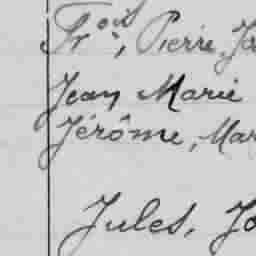 Frois, Pierre, Ja
Jean Marie
Jérôme, Mar
Jules, Jo